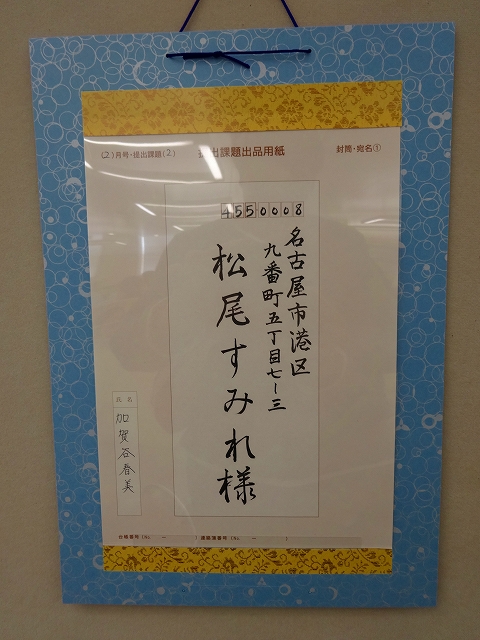 (2)月号・提出課題(2) 提出課題出品用紙 封筒・宛名①
4550008
名古屋市港区
九番町五丁目七ー三
松尾すみれ様
氏名
加賀谷春美
台帳番号(No. ー ) 連絡簿番号(No. ー )